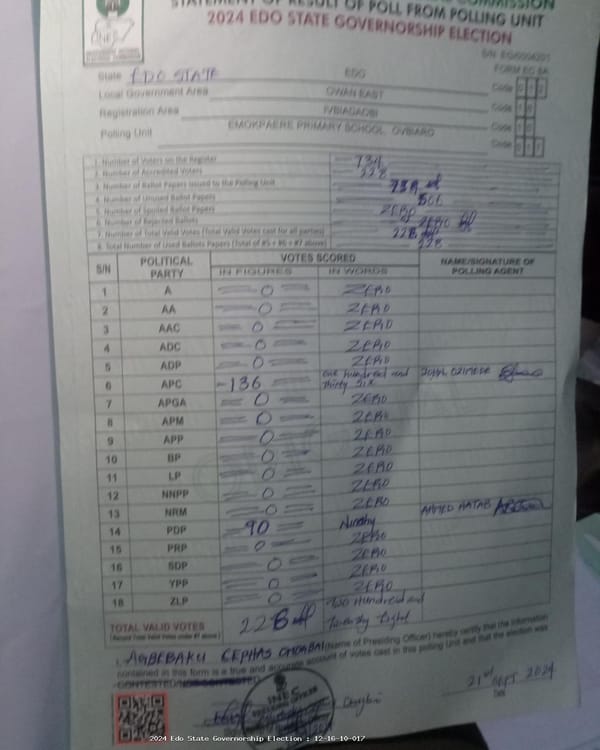 STATEMENT OF RESULT OF POLL FROM POLLING UNIT
2024 EDO STATE GOVERNORSHIP ELECTION
FORM EC 8A
State EDO STATE EDO Code
Local Government Area OWAN EAST Code
Registration Area Code
Polling Unit EMOKPAERE PRIMARY SCHOOL, Code
1. Number of Voters on the Register 734
2. Number of Accredited Voters 228
3. Number of Ballot Papers Issued to the Polling Unit 734
4. Number of Unused Ballot Papers
5. Number of Spoiled Ballot Papers ZERO
6. Number of Rejected Ballots ZERO
7. Number of Total Valid Votes (Total Valid Votes cast for all parties) 228
8. Total Number of Used Ballots Papers (Total of #5 + #6 + #7 above) 228
S/N POLITICAL PARTY VOTES SCORED NAME/SIGNATURE OF POLLING AGENT
IN FIGURES IN WORDS
1 A 0 ZERO
2 AA 0 ZERO
3 AAC 0 ZERO
4 ADC 0 ZERO
5 ADP 0 ZERO
6 APC 136 one hundred and thirty six JOHN
7 APGA 0 ZERO
8 APM 0 ZERO
9 APP 0 ZERO
10 BP 0 ZERO
11 LP 0 ZERO
12 NNPP 0 ZERO
13 NRM 0 ZERO
14 PDP 90 AHMED
15 PRP 0 ZERO
16 SDP 0 ZERO
17 YPP 0 ZERO
18 ZLP 0 ZERO
TOTAL VALID VOTES 228 Two Hundred and Twenty Eight
I, AGBEBAKU CEPHAS (Name of Presiding Officer) hereby certify that the information
contained in this form is a true and accurate account of votes cast in this polling Unit and that the election was
CONTESTED/NOT CONTESTED
21st SEPT. 2024
Date
2024 Edo State Governorship Election : 12-16-10-017